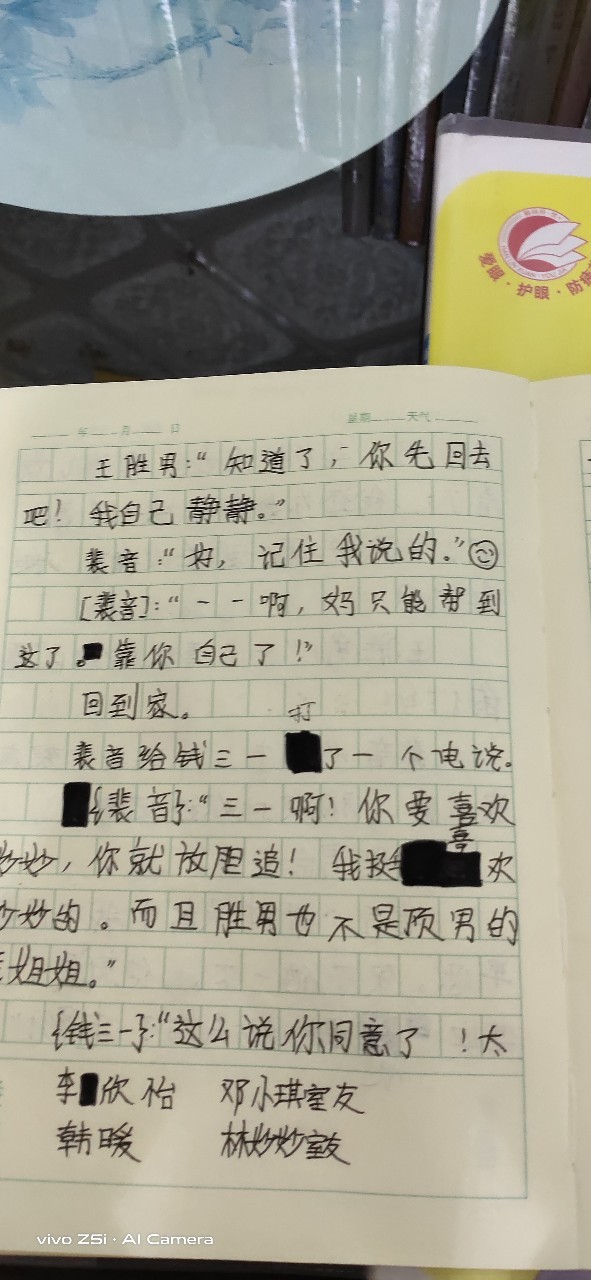 爱眼·护眼·防
年 月 日 星期 天气
王胜男：“知道了，你先回去
吧！我自己静静。”
裴音：“好，记住我说的。”
[裴音]：“一一啊，妈只能帮到
这了。靠你自己了！”
回到家。
打
裴音给钱三一了一个电说。
{裴音}：“三一啊！你要喜欢
妙妙，你就放胆追！我挺喜欢
妙妙的。而且胜男也不是顶男的
姐姐。”
{钱三一}：“这么说你同意了！太
李欣怡 邓小琪室友
韩暖 林妙妙室友
vivo Z5i · AI Camera